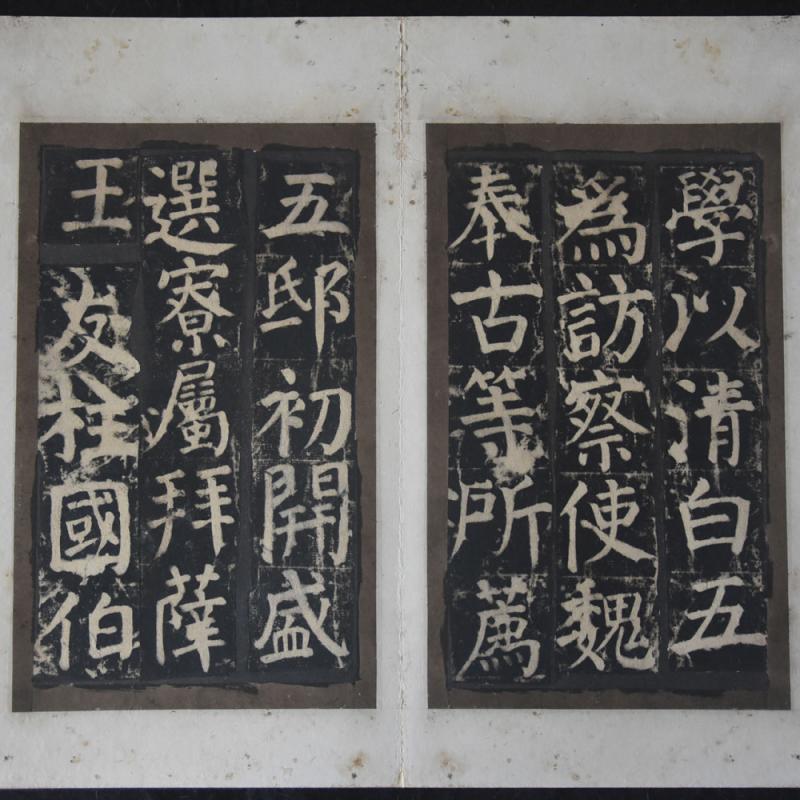 學以清白五
爲訪察使魏
奉古等所薦
五邸初開盛
選寮屬拜薛
王友柱國伯